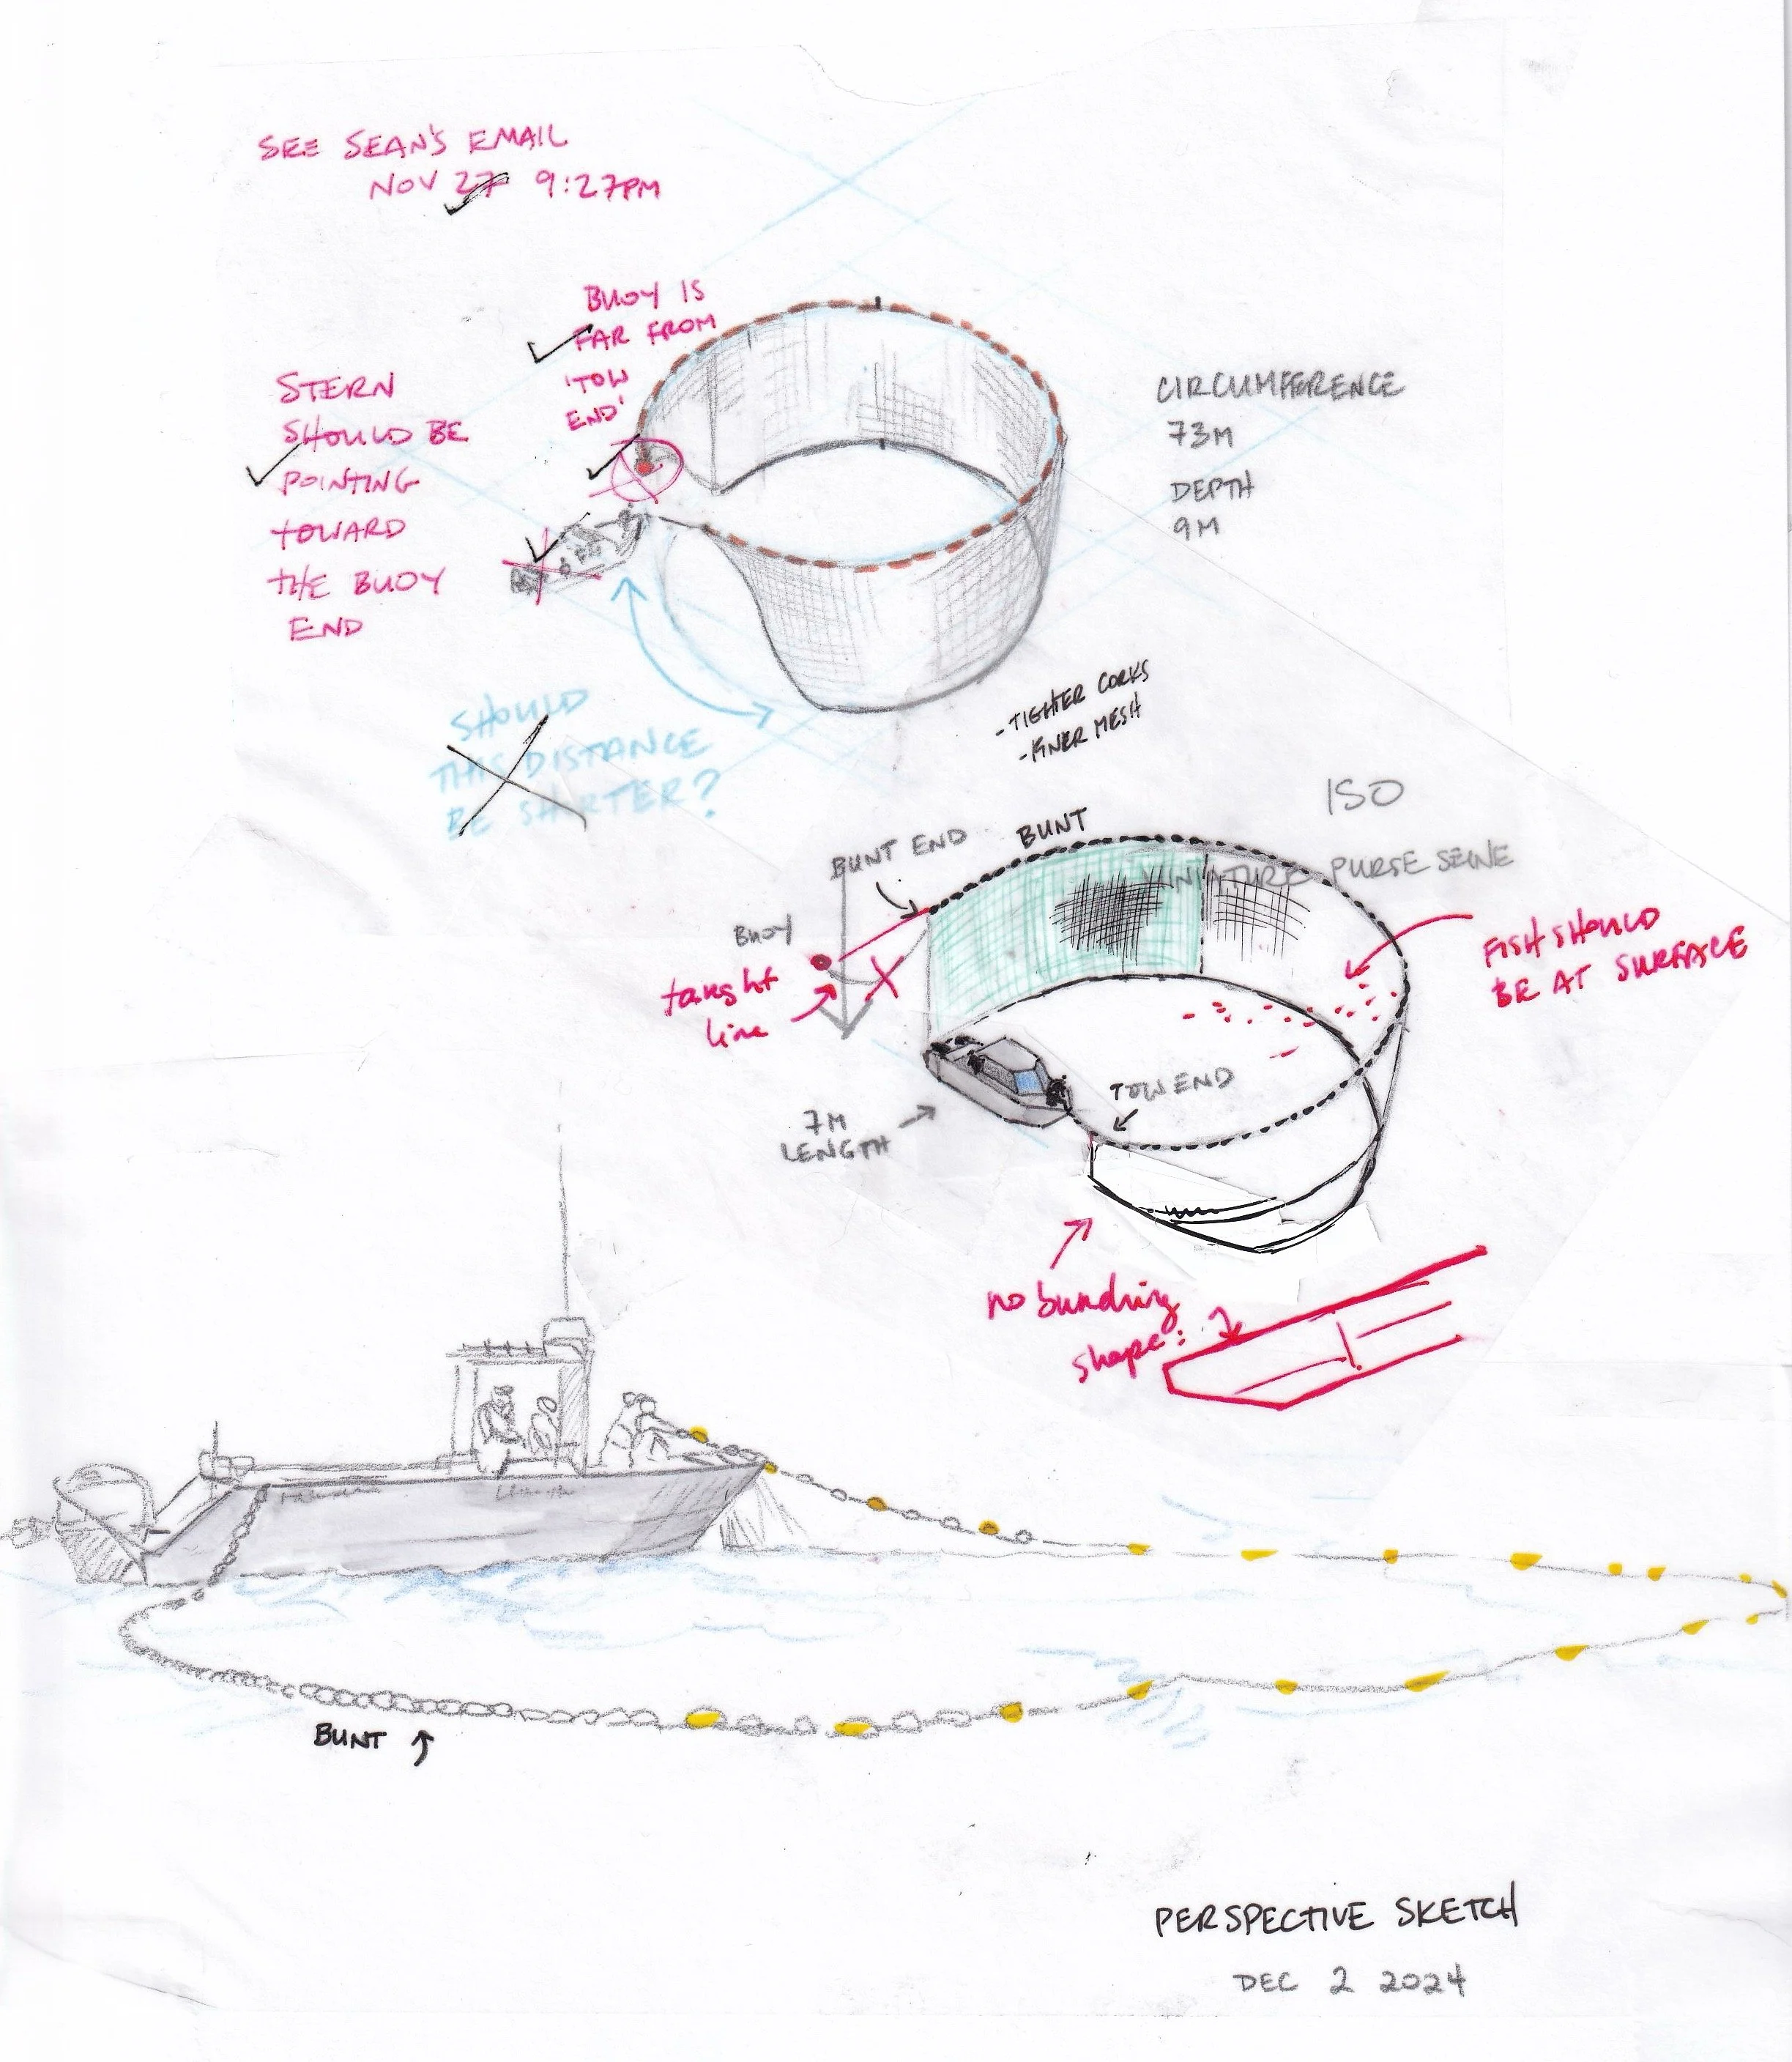 SEE SEAN'S EMAIL
NOV 27 9:27PM
BUOY IS
FAR FROM
'TOW
END'
STERN
SHOULD BE
POINTING
TOWARD
THE BUOY
END
CIRCUMFERENCE
73M
DEPTH
9M
SHOULD
THIS DISTANCE
BE SHORTER?
- TIGHTER CORKS
- FINER MESH
ISO
MINIATURE PURSE SEINE
BUNT END
BUNT
BUOY
taught
line
FISH SHOULD
BE AT SURFACE
TOW END
7M
LENGTH
no bunching
shape:
BUNT
PERSPECTIVE SKETCH
DEC 2 2024